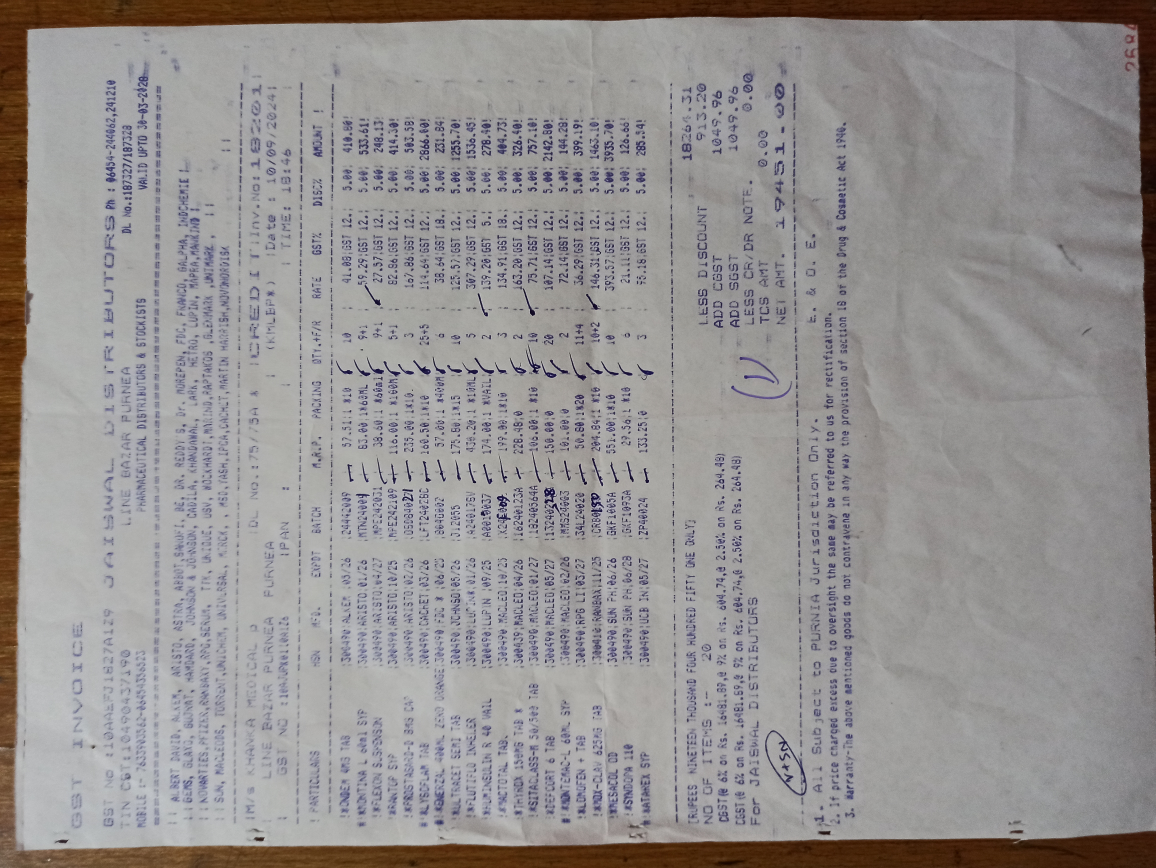 GST INVOICE
GST NO :10AAEFJ1827A1Z9 JAISWAL DISTRIBUTORS Ph : 06454-244062,241210
TIN CST:1049043/190 LINE BAZAR PURNEA DL No.:187327/187328
MOBILE :- 7033903562-06454356623 PHARMACEUTICAL DISTRIBUTORS & STOCKISTS VALID UPTO 30-03-2028
ALBERT DAVID, ALKEM, ARISTO, ASTRA, ABBOT, SANOFI, BE, DR. REDDY S, Dr. MOREPEN, FDC, FRANCO, GALPHA, INDCHEMIE
GEMS, GLAXO, GUJRAT, HAMDARD, JOHNSON & JOHNSON, CADILA, KHANDAWAL, LARK, METRO, LUPIN, MAPRA, MANKIND
NOVARTIES,PFIZER,RANBAXY,RPG,SERUM, TTK, UNIQUE, USV, WOCKHARDT,WALIND,RAPTAKOS ,GLENMARK ,UNIMARK ,
SUN, MACLEODS, TORRENT,UNICHEM, UNIVERSAL, MERCK, MSD,YASH,IPCA,CACHET,MARTIN HARRISH,NOVONORDISK
M/s KHANKA MEDICAL DL NO.:75/75A * CREDIT Inv.No:18201
LINE BAZAR PURNEA PURNEA (KMLBP*) Date : 10/09/2024
GST NO IPAN : TIME: 18:46
PARTICULARS HSN MFGL EXPDT BATCH M.R.P. PACKING QTY.+F/R RATE GST% DISC% AMOUNT
ONDEM 4MG TAB 300490 ALKEM 05/26 24442009 57.51 1 *10 10 41.08 GST 12. 5.00 410.80
MONTINA L 60ml SYP 300490 ARISTO 01/26 83.00 1*60ML 9+1 59.29 GST 12. 5.00 533.61
FLEXON SUSPENSION 300490 ARISTO 04/27 MPE242031 38.60 1 *60ml 9+1 27.57 GST 12. 5.00 248.13
ARANTGP SYP 300490 ARISTO 10/25 MPE242109 116.00 1 5+1 82.86 GST 12. 5.00 414.30
PROSTAGARD-D 8MG CAP 300490 ARISTO 02/26 235.00 1*10. 3 167.86 GST 12. 5.00 503.58
LYSOFLAM TAB 300490 CACHET 03/26 LFT24028C 160.50 1*10 25+5 114.64 GST 12. 5.00 2866.00
ENERZAL 400ML ZERO ORANGE 300490 FDC * 06/25 57.00 1 6 38.64 GST 18. 5.00 231.84
ULTRACET SEMI TAB 300490 JOHNSO 05/26 J12055 175.80 1*15 10 125.57 GST 12. 5.00 1255.70
FLUTIFLO INHELER 300490 01/26 430.20 1 *10ML 5 307.29 GST 12. 5.00 1536.45
HUMINSULIN R 40 VAIL 300490 LUPIN 09/25 174.00 1 *VAIL 2 139.20 GST 5. 5.00 278.40
MACTOTAL TAB. 300490 MACLEO 10/25 199.00 1*10 3 134.91 GST 18. 5.00 404.73
THYROX 150MG TAB * 300439 MACLEO 04/26 16240123A 228.48 0 2 163.20 GST 12. 5.00 326.40
SITACLASS-M 50/500 TAB 300490 MACLEO 01/27 18240564A 106.00 1 *10 10 75.71 GST 12. 5.00 757.10
DEFCORT 6 TAB 300490 MACLEO 05/27 150.00 0 20 107.14 GST 12. 5.00 2142.80
MONTEMAC-L 60ML SYP 300490 MACLEO 02/26 MMS24003 101.00 0 2 72.14 GST 12. 5.00 144.28
LOMOFEN + TAB 300490 RPG LI 03/27 34L24020 50.80 1*20 11+4 36.29 GST 12. 5.00 399.19
MOX-CLAV 625MG TAB 300410 RANBAX 11/25 204.84 1 *10 10+2 146.31 GST 12. 5.00 1463.10
MESACOL OD 300490 SUN PH 06/26 GKF1005A 551.00 1*10 10 393.57 GST 12. 5.00 3935.70
SYNDOPA 110 300490 SUN PH 06/28 GKF1093A 29.56 1 *10 6 21.11 GST 12. 5.00 126.66
ATARAX SYP 300490 UCB IN 05/27 ZP40024 133.25 0 3 95.18 GST 12. 5.00 285.54
18264.31
(RUPEES NINETEEN THOUSAND FOUR HUNDRED FIFTY ONE ONLY) LESS DISCOUNT 913.20
NO OF ITEMS :- 20 ADD CGST 1049.96
CGST(@ 6% on Rs. 16481.89,@ 9% on Rs. 604.74,@ 2.50% on Rs. 264.48) ADD SGST 1049.96
CGST(@ 6% on Rs. 16481.89,@ 9% on Rs. 604.74,@ 2.50% on Rs. 264.48) LESS CR/DR NOTE. 0.00
For JAISWAL DISTRIBUTORS TCS AMT 0.00
NET AMT. 19451.00
E. & O. E.
1. All Subject to PURNIA Jurisdiction Only.
2. If price charged excess due to oversight the same may be referred to us for rectification.
3. Warranty:The above mentioned goods do not contravene in any way the provision of section 18 of the Drug & Cosmetic Act 1940.